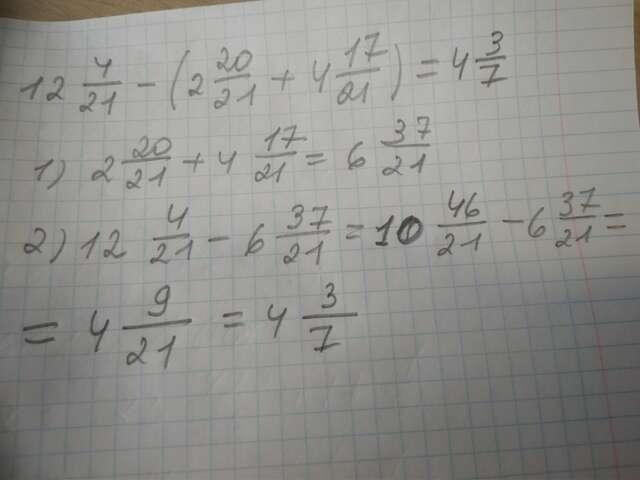 12 4/21 - (2 20/21 + 4 17/21) = 4 3/7
1) 2 20/21 + 4 17/21 = 6 37/21
2) 12 4/21 - 6 37/21 = 10 46/21 - 6 37/21 =
= 4 9/21 = 4 3/7